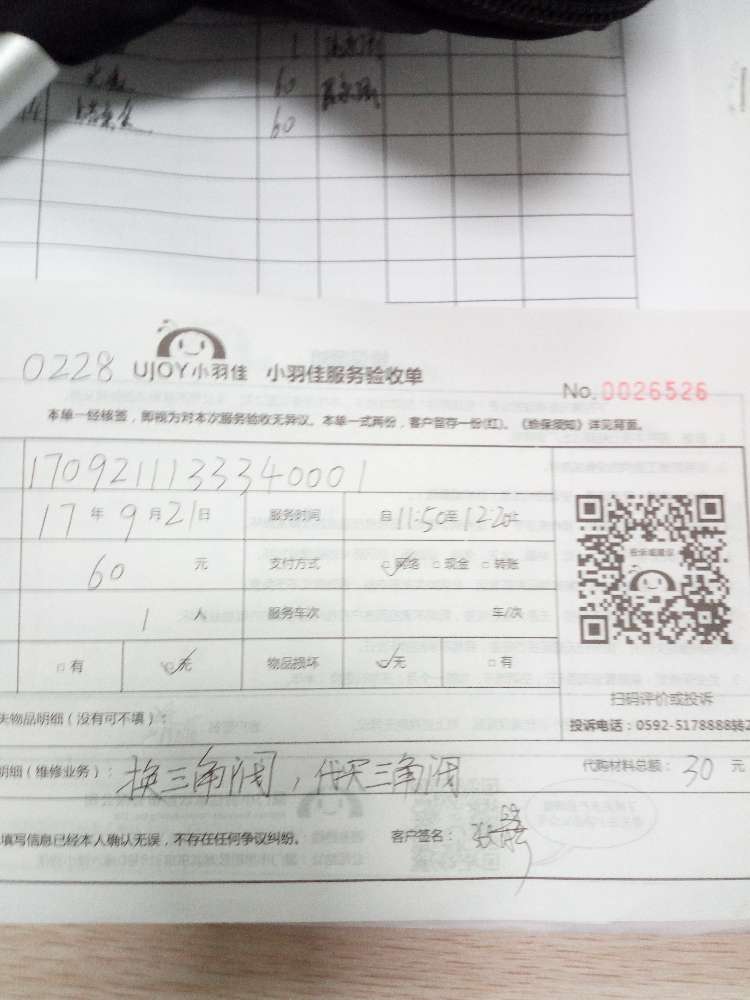 1
60
60
0228 UJOY小羽佳 小羽佳服务验收单
No. 0026526
本单一经核签，即视为对本次服务验收无异议。本单一式两份，客户留存一份(红)。《维保须知》详见背面。
1709211133340001
17年9月21日 服务时间 自11:50至12:20止
60元 支付方式 □网络 □现金 □转账
1人 服务车次 车/次
□有 □无 物品损坏 □无 □有
投诉或建议
扫码评价或投诉
投诉电话：0592-5178888转2
失物品明细（没有可不填）：
明细（维修业务）：换三角阀，代买三角阀 代购材料总额：30元
填写信息已经本人确认无误，不存在任何争议纠纷。 客户签名：